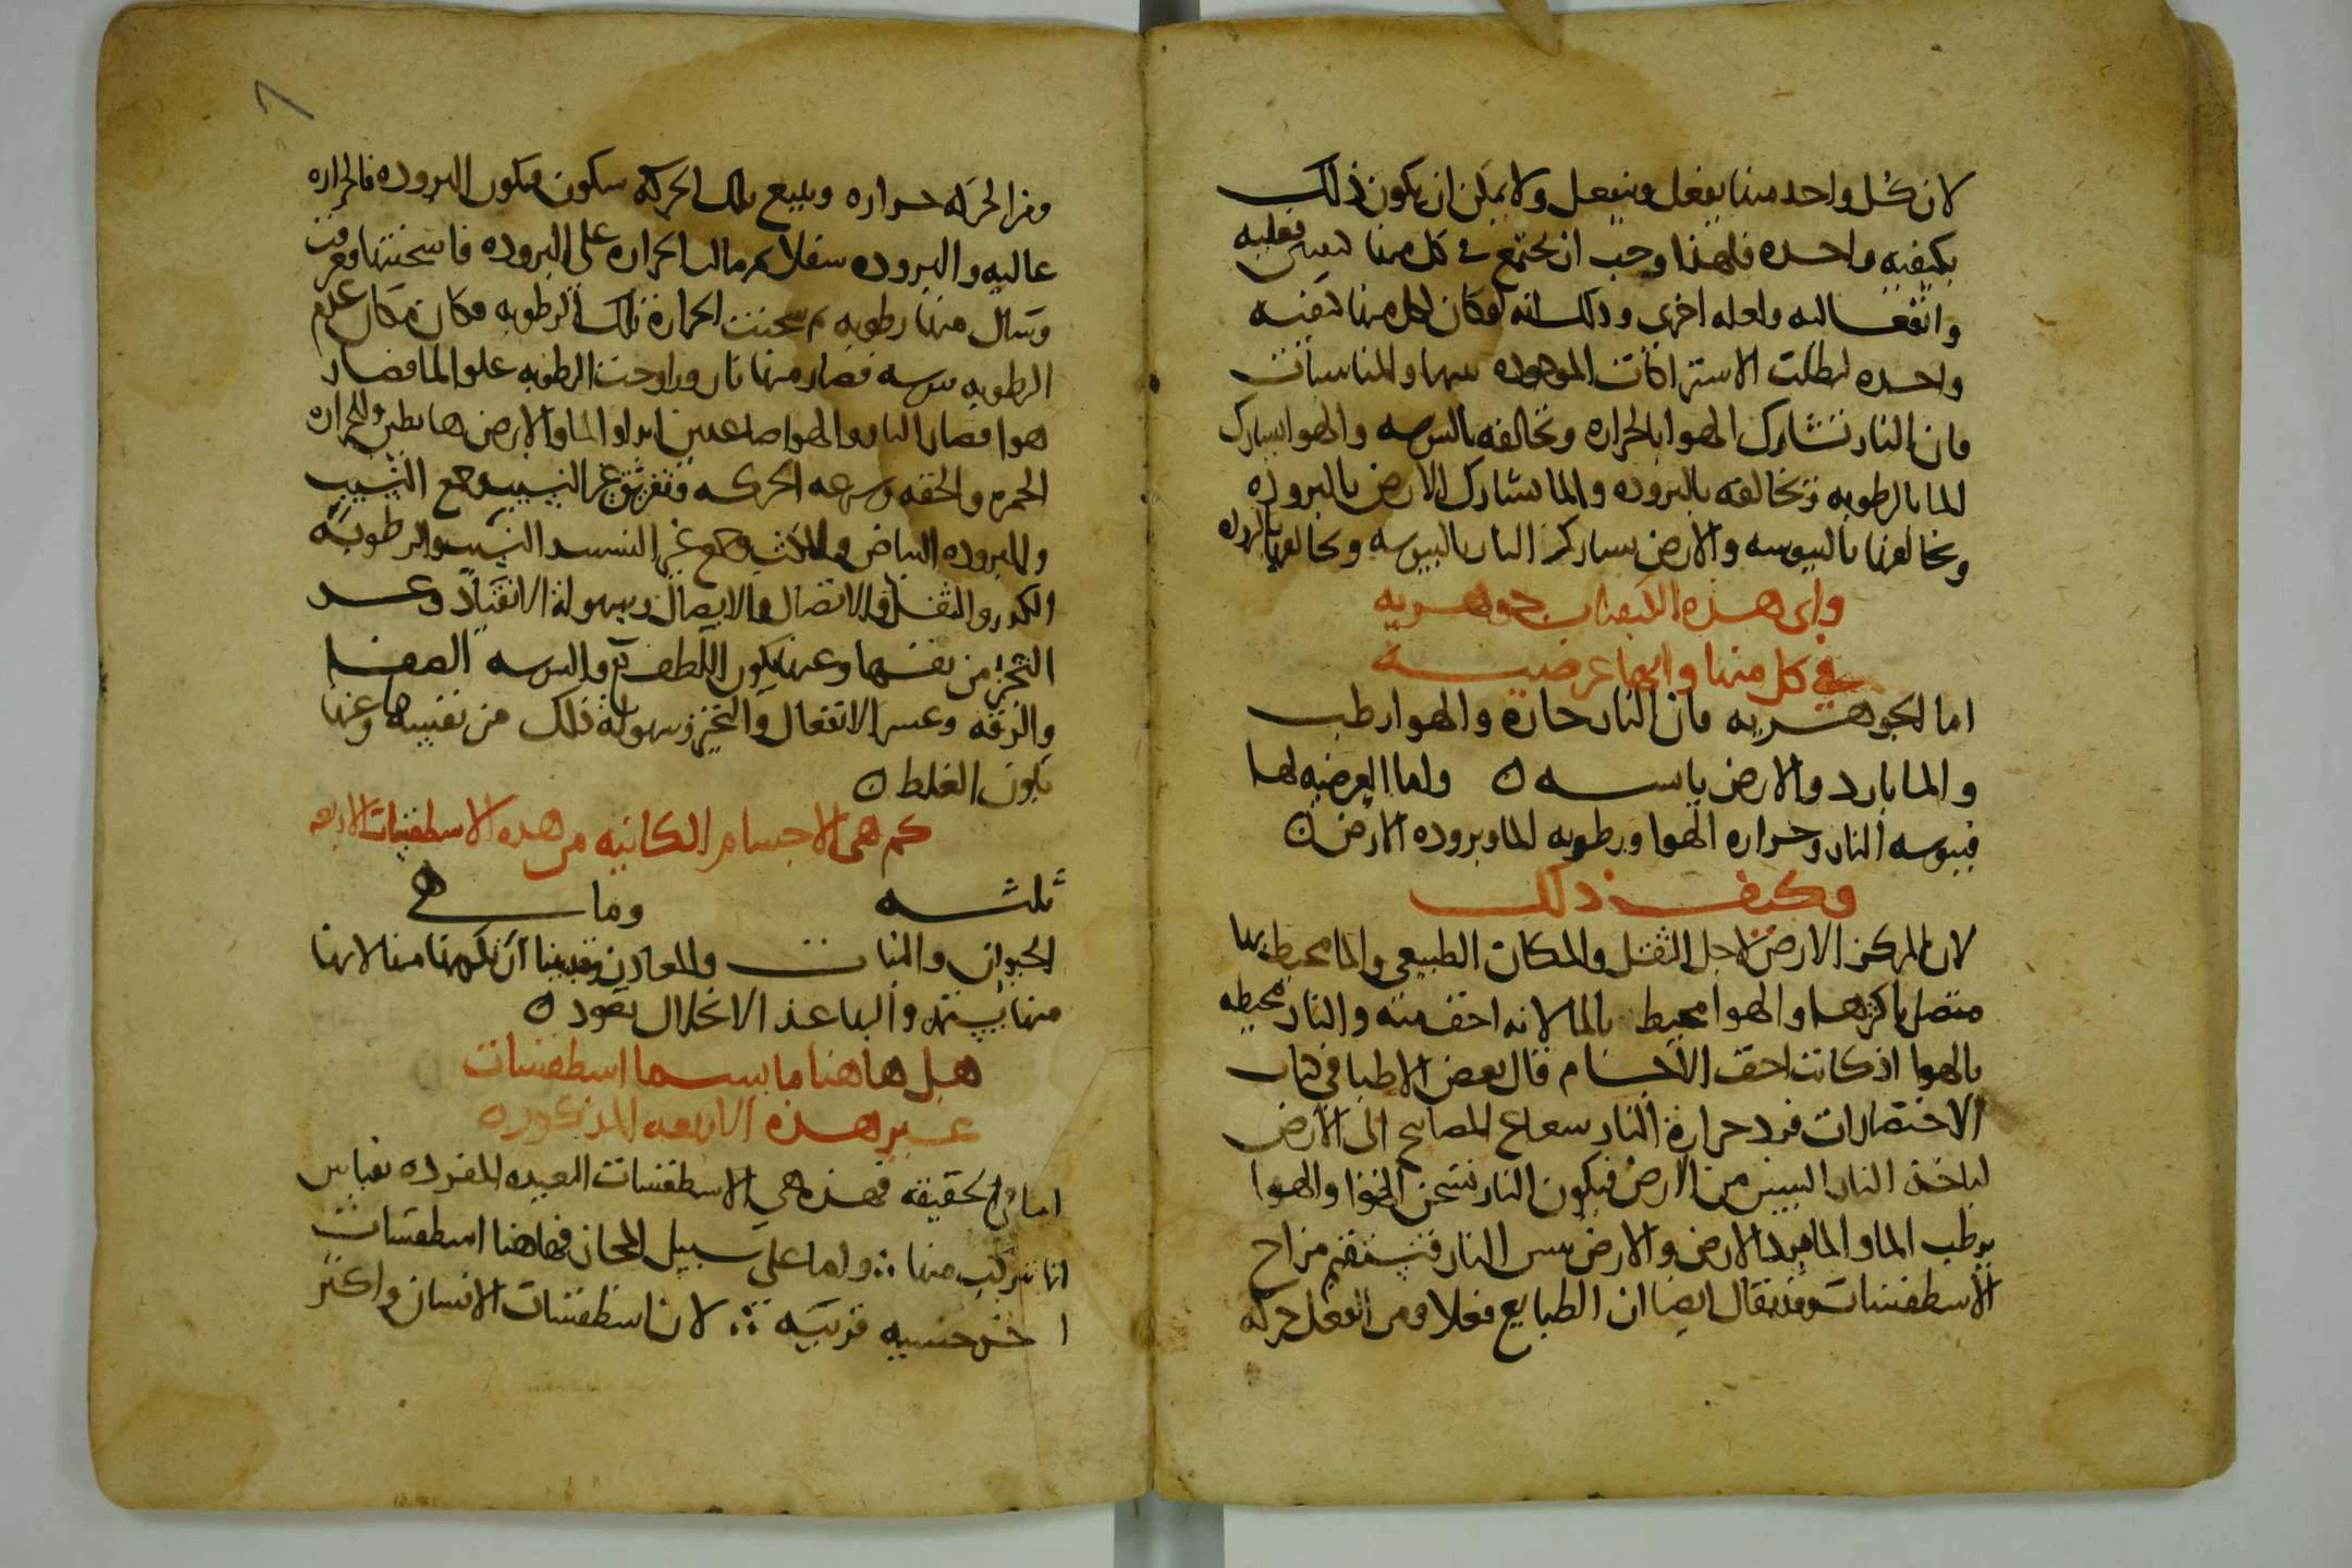 لان كل واحد منها يفعل وينفعل ولا يمكن ان يكون ذلك
بكيفيه واحده فلهذا وجب ان يجتمع في كل منها كيفيتين فعليه
وانفعاليه ولعله اخرى وذلك انه لو كان لكل منها كيفيه
واحده لبطلت الاشتراكات الموجوده بينها والمناسبات
فان النار تشارك الهوا بالحراره وتخالفه باليبوسه والهوا يشارك
الما بالرطوبه وتخالفه بالبروده والما يشارك الارض بالبروده
ويخالفها باليبوسه والارض تشارك النار باليبوسه وتخالفها بالبروده
واى هذه الكيفيات جوهريه
في كل منها وايها عرضيه
اما الجوهريه فان النار حارة والهوا رطب
والما بارد والارض يابسه ن واما العرضيه لها
فيبوسه النار وحراره الهوا ورطوبه الما وبروده الارض ن
وكيف ذلك
لان المركز الارض لاجل الثقل والمكان الطبيعي والما محيط بها
متصل باكثرها والهوا محيط بالما لانه اخف منه والنار محيطه
بالهوا اذ كانت اخف الاجسام قال بعض الاطبا في كتاب
الاختصارات فرد حرارة النار شعاع المصابيح الى الارض
لياخذ النار اليبس من الارض فيكون النار تسخن الهوا والهوا
يرطب الما والما يبرد الارض والارض يبس النار فتستقيم مزاج
الاسطقسات وقد يقال ايضا ان الطبايع فعلا ومن الفعل حركه
ومن الحركه حراره ويتبع تلك الحركه سكون فيكون البروده فالحراره
عاليه والبروده سفلا ثم مالت الحراره على البروده فاسخنتها وفرقت
وسال منها رطوبه ثم سخنت الحرارة تلك الرطوبه فكان مكان علم
الرطوبه يبوسه فصار منها نار وزاوجت الرطوبه علو الما فصار
هوا فصار النار والهوا صاعدين ابدا والما والارض هابطين وللحراره
الحمره والخفه وسرعه الحركه وتفريق غير النسيب وجمع النسيب
وللبروده البياض وجمع غير النسيب النسيب والرطوبه
الكدر والثقل والاتصال والايصال وسهولة الانقياد وعسر
التحيز من نفسها وعنها يكون اللطف واليبوسه الصفا
والرقه وعسر الانفعال والتحيز وسهولة ذلك من نفسها وعنها
يكون الغلظ ن
كم هى الاجسام الكاينه من هذه الاسطقسات الاربعه
ثلثه وما هي
الحيوان والنبات والمعادن وقد بينا ان تكونها منها لانها
منها يبتدى واليها عند الانحلال تعود ن
هل هاهنا ما يسما اسطقسات
غير هذه الاربعه المذكوره
اما في الحقيقه فهذه هي الاسطقسات البعيده المفرده بقياس
انا نتركب منها ∴ واما على سبيل المجاز فهاهنا اسطقسات
اخر جنسيه قريبه ∴ لان اسطقسات الانسان واكثر